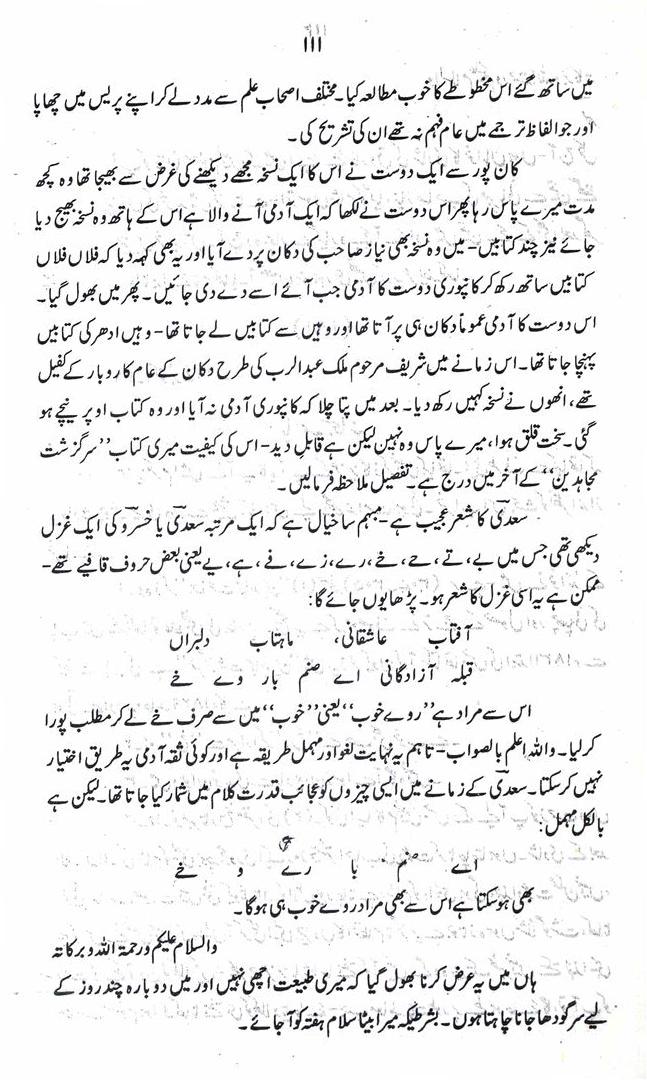 ۱۱۱
میں ساتھ گئے اس مخطوطے کا خوب مطالعہ کیا۔ مختلف اصحاب علم سے مدد لے کر اپنے پریس میں چھاپا
اور جو الفاظ ترجمے میں عام فہم نہ تھے ان کی تشریح کی۔
کان پور سے ایک دوست نے اس کا ایک نسخہ مجھے دیکھنے کی غرض سے بھیجا تھا وہ کچھ
مدت میرے پاس رہا پھر اس دوست نے لکھا کہ ایک آدمی آنے والا ہے اس کے ہاتھ وہ نسخہ بھیج دیا
جائے نیز چند کتابیں- میں وہ نسخہ بھی نیاز صاحب کی دکان پر دے آیا اور یہ بھی کہہ دیا کہ فلاں فلاں
کتابیں ساتھ رکھ کر کانپوری دوست کا آدمی جب آئے اسے دے دی جائیں۔ پھر میں بھول گیا۔
اس دوست کا آدمی عموماً دکان ہی پر آتا تھا اور وہیں سے کتابیں لے جاتا تھا- وہیں ادھر کی کتابیں
پہنچا جاتا تھا۔ اس زمانے میں شریف مرحوم ملک عبدالرب کی طرح دکان کے عام کاروبار کے کفیل
تھے، انھوں نے نسخہ کہیں رکھ دیا۔ بعد میں پتا چلا کہ کانپوری آدمی نہ آیا اور وہ کتاب اوپر نیچے ہو
گئی۔ سخت قلق ہوا، میرے پاس وہ نہیں لیکن ہے قابل دید- اس کی کیفیت میری کتاب ’’سرگزشت
مجاہدین‘‘ کے آخر میں درج ہے۔ تفصیل ملاحظہ فرمالیں۔
سعدیؔ کا شعر عجیب ہے- مبہم سا خیال ہے کہ ایک مرتبہ سعدیؔ یا خسروؔ کی ایک غزل
دیکھی تھی جس میں بے، تے، حے، خے، رے، زے، فے، ہے، یے یعنی بعض حروف قافیے تھے-
ممکن ہے یہ اسی غزل کا شعر ہو۔ پڑھا یوں جائے گا:
آفتاب عاشقانی، ماہتاب دلبراں
قبلہ آزادگانی اے صنم بار وے خے
اس سے مراد ہے ’’روے خوب‘‘ یعنی ’’خوب‘‘ میں سے صرف خے لے کر مطلب پورا
کر لیا۔ واللہ اعلم بالصواب- تاہم یہ نہایت لغو اور مہمل طریقہ ہے اور کوئی ثقہ آدمی یہ طریق اختیار
نہیں کر سکتا۔ سعدیؔ کے زمانے میں ایسی چیزوں کو عجائب قدرت کلام میں شمار کیا جاتا تھا۔ لیکن ہے
بالکل مہمل:
اے صنم با رے و خے
بھی ہو سکتا ہے اس سے بھی مراد روے خوب ہی ہوگا۔
والسلام علیکم ورحمۃ اللہ وبرکاتہ
ہاں میں یہ عرض کرنا بھول گیا کہ میری طبیعت اچھی نہیں اور میں دوبارہ چند روز کے
لیے سرگودھا جانا چاہتا ہوں۔ بشرطیکہ میرا بیٹا سلام ہفتہ کو آ جائے۔